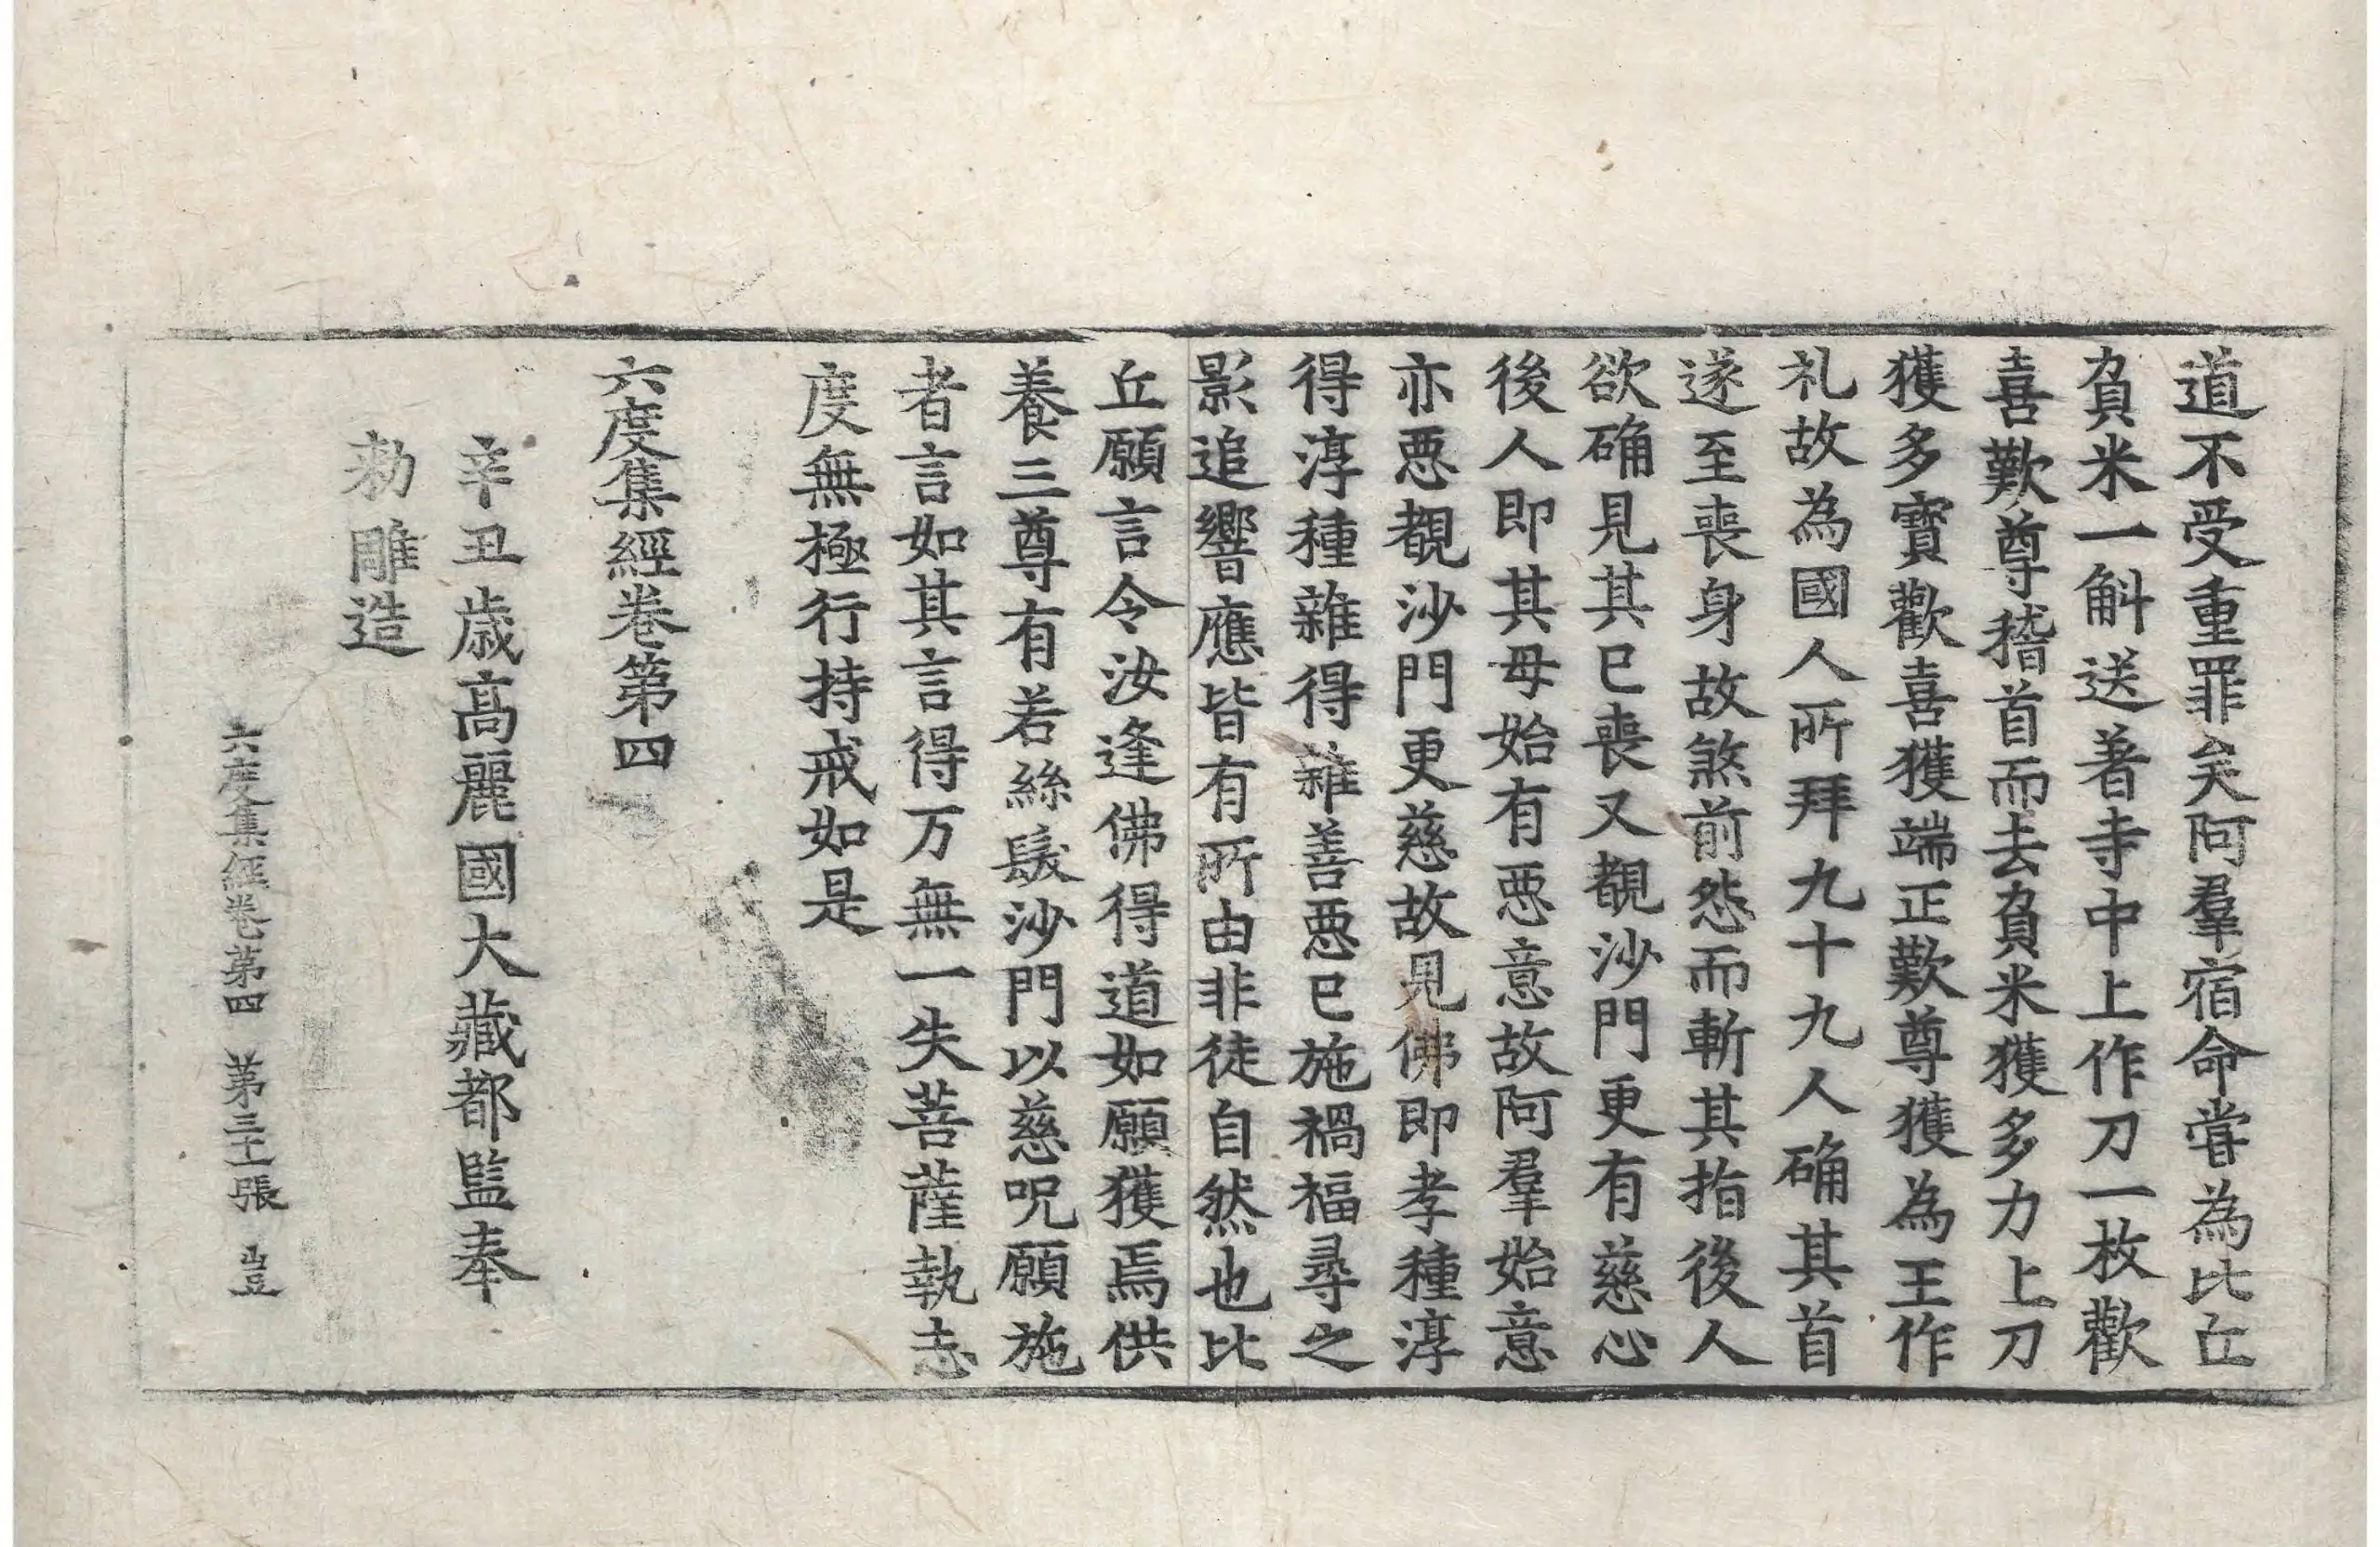 道不受重罪矣阿羣宿命甞為比丘
負米一斛送著寺中上作刀一枚歡
喜歎尊稽首而去負米獲多力上刀
獲多寶歡喜獲端正歎尊獲為王作
礼故為國人所拜九十九人确其首
遂至喪身故煞前怨而斬其指後人
欲确見其已喪又覩沙門更有慈心
後人即其母始有惡意故阿羣始意
亦惡覩沙門更慈故見佛即孝種淳
得淳種雜得雜善惡已施禍福尋之
影追響應皆有所由非徒自然也比
丘願言令汝逢佛得道如願獲焉供
養三尊有若絲髮沙門以慈呪願施
者言如其言得万無一失菩薩執志
度無極行持戒如是
六度集經卷第四
辛丑歲高麗國大藏都監奉
勑雕造
六度集經卷第四 第三十張 豈